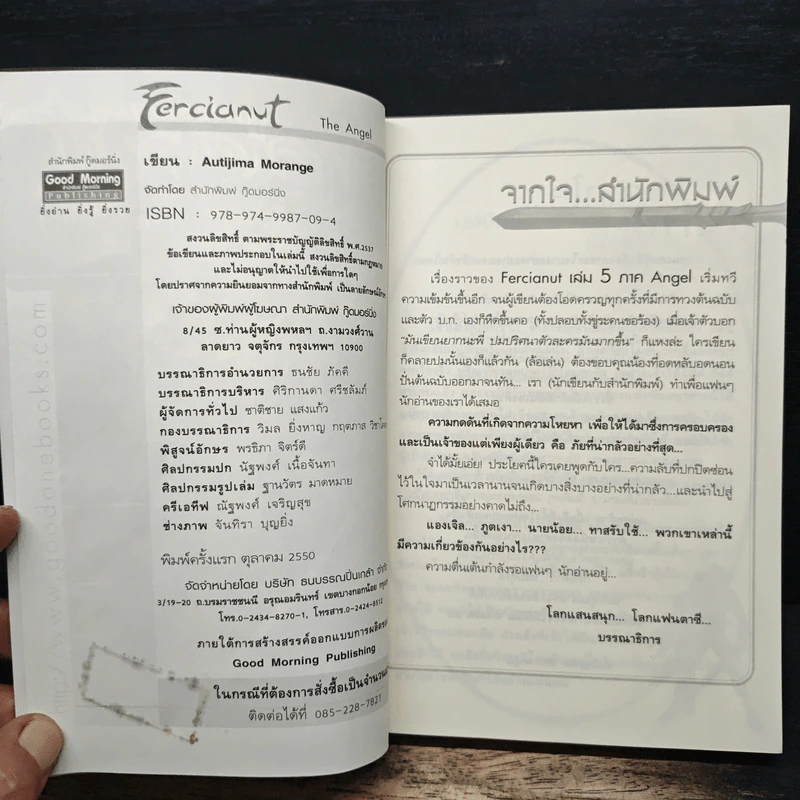 Fercianut
The Angel
สำนักพิมพ์ กู๊ดมอร์นิ่ง
Good Morning
สำนักพิมพ์ กู๊ดมอร์นิ่ง
Publishing
ยิ่งอ่าน ยิ่งรู้ ยิ่งรวย
เขียน : Autijima Morange
จัดทำโดย สำนักพิมพ์ กู๊ดมอร์นิ่ง
ISBN : 978-974-9987-09-4
สงวนลิขสิทธิ์ ตามพระราชบัญญัติลิขสิทธิ์ พ.ศ.2537
ข้อเขียนและภาพประกอบในเล่มนี้ สงวนลิขสิทธิ์ตามกฎหมาย
และไม่อนุญาตให้นำไปใช้เพื่อการใดๆ
โดยปราศจากความยินยอมจากทางสำนักพิมพ์ เป็นลายลักษณ์อักษร
เจ้าของผู้พิมพ์ผู้โฆษณา สำนักพิมพ์ กู๊ดมอร์นิ่ง
8/45 ซ.ท่านผู้หญิงพหลฯ ถ.งามวงศ์วาน
ลาดยาว จตุจักร กรุงเทพฯ 10900
บรรณาธิการอำนวยการ ธนชัย ภัคดี
บรรณาธิการบริหาร ศิริกานดา ศรีชลัมภ์
ผู้จัดการทั่วไป ชาติชาย แสงแก้ว
กองบรรณาธิการ วิมล ยิ่งหาญ กฤตภาส
พิสูจน์อักษร พรธิภา จิตร์ดี
ศิลปกรรมปก นัฐพงศ์ เนื้อจันทา
ศิลปกรรมรูปเล่ม ฐานวัตร มาดหมาย
ครีเอทีฟ ณัฐพงศ์ เจริญสุข
ช่างภาพ จันทิรา บุญยิ่ง
พิมพ์ครั้งแรก ตุลาคม 2550
จัดจำหน่ายโดย บริษัท ธนบรรณปิ่นเกล้า จำกัด
3/19-20 ถ.บรมราชชนนี อรุณอมรินทร์ เขตบางกอกน้อย
โทร.0-2434-8270-1, โทรสาร.0-2424-8512
ภายใต้การสร้างสรรค์ออกแบบการผลิตของ
Good Morning Publishing
ในกรณีที่ต้องการสั่งซื้อเป็นจำนวน
ติดต่อได้ที่ 085-228-7821
http://www.goodonebooks.com
จากใจ...สำนักพิมพ์
เรื่องราวของ Fercianut เล่ม 5 ภาค Angel เริ่มทวี
ความเข้มข้นขึ้นอีก จนผู้เขียนต้องโอดครวญทุกครั้งที่มีการทวงต้นฉบับ
และตัว บ.ก. เองก็หืดขึ้นคอ (ทั้งปลอบทั้งขู่ระคนขอร้อง) เมื่อเจ้าตัวบอก
“มันเขียนยากนะพี่ ปมปริศนาตัวละครมันมากขึ้น” ก็แหงล่ะ ใครเขียน
ก็คลายปมนั้นเองก็แล้วกัน (ล้อเล่น) ต้องขอบคุณน้องที่อดหลับอดนอน
ปั่นต้นฉบับออกมาจนทัน... เรา (นักเขียนกับสำนักพิมพ์) ทำเพื่อแฟนๆ
นักอ่านของเราได้เสมอ
ความกดดันที่เกิดจากความโหยหา เพื่อให้ได้มาซึ่งการครอบครอง
และเป็นเจ้าของแต่เพียงผู้เดียว คือ ภัยที่น่ากลัวอย่างที่สุด...
จำได้มั้ยเอ่ย! ประโยคนี้ใครเคยพูดกับใคร...ความลับที่ปกปิดซ่อน
ไว้ในใจมาเป็นเวลานานจนเกิดบางสิ่งบางอย่างที่น่ากลัว...และนำไปสู่
โศกนาฏกรรมอย่างคาดไม่ถึง...
แองเจิล... ภูตเงา... นายน้อย... ทาสรับใช้... พวกเขาเหล่านี้
มีความเกี่ยวข้องกันอย่างไร???
ความตื่นเต้นกำลังรอแฟนๆ นักอ่านอยู่...
โลกแสนสนุก... โลกแฟนตาซี...
บรรณาธิการ